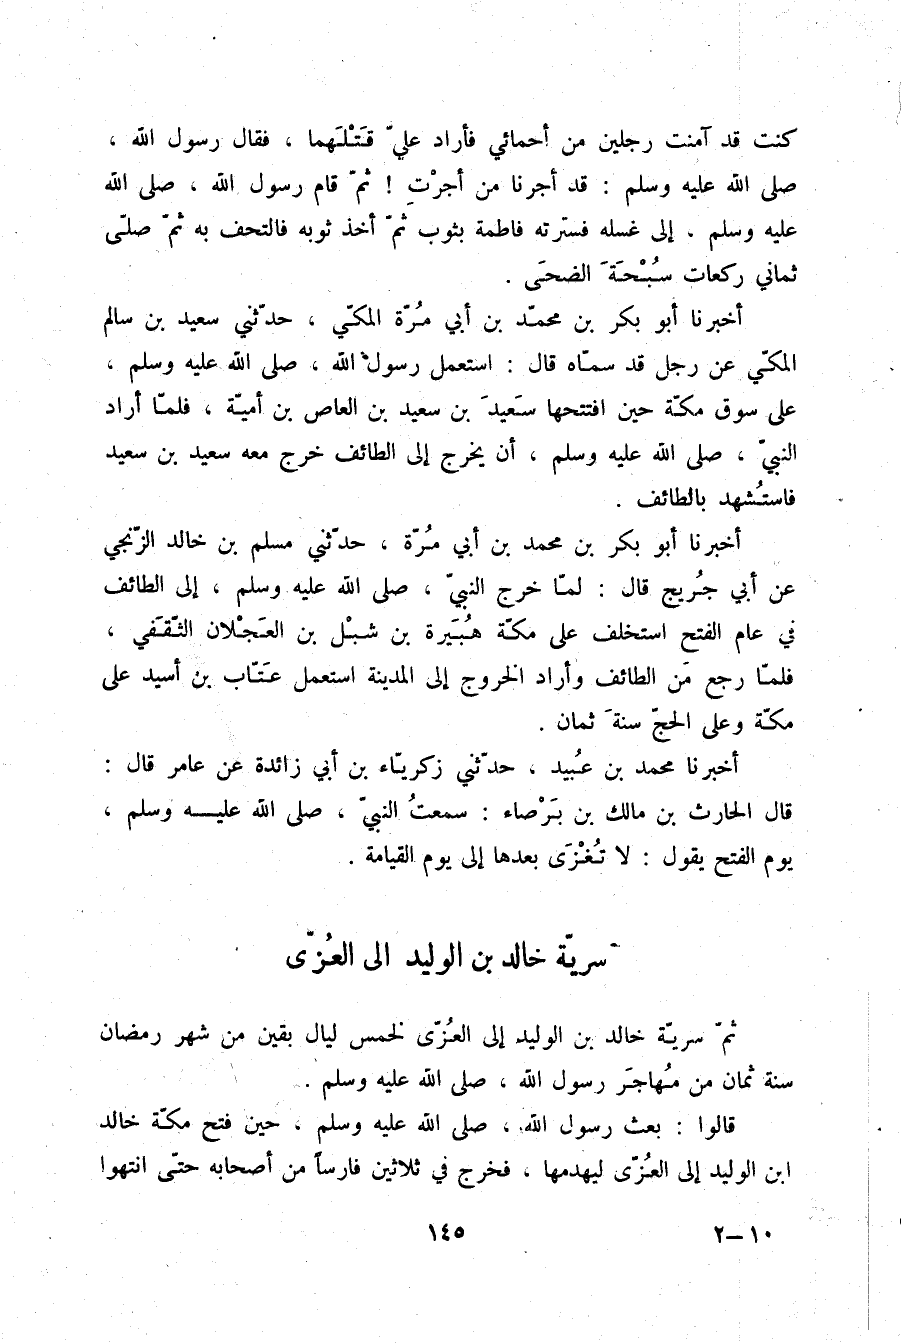 كنت قد آمنت رجلين من أحمائي فأراد عليّ قَتْلَهما ، فقال رسول الله ،
صلى الله عليه وسلم : قد أجرنا من أجرْتِ ! ثمّ قام رسول الله ، صلى الله
عليه وسلم ، إلى غسله فسترته فاطمة بثوب ثمّ أخذ ثوبه فالتحف به ثمّ صلّى
ثماني ركعات سُبْحَةَ الضحَى .
أخبرنا أبو بكر بن محمّد بن أبي مُرّة المكّي ، حدّثني سعيد بن سالم
المكّي عن رجل قد سمّاه قال : استعمل رسول الله ، صلى الله عليه وسلم ،
على سوق مكّة حين افتتحها سَعيدَ بن سعيد بن العاص بن أميّة ، فلمّا أراد
النبيّ ، صلى الله عليه وسلم ، أن يخرج إلى الطائف خرج معه سعيد بن سعيد
فاستُشهد بالطائف .
أخبرنا أبو بكر بن محمد بن أبي مُرّة ، حدّثني مسلم بن خالد الزّنجي
عن أبي جُريج قال : لمّا خرج النبيّ ، صلى الله عليه وسلم ، إلى الطائف
في عام الفتح استخلف على مكّة هُبَيرة بن شبْل بن العَجْلان الثّقَفي ،
فلمّا رجع مَن الطائف وأراد الخروج إلى المدينة استعمل عَتّاب بن أسيد على
مكّة وعلى الحجّ سنةَ ثمان .
أخبرنا محمد بن عُبيد ، حدّثني زكريّاء بن أبي زائدة عن عامر قال :
قال الحارث بن مالك بن بَرْصاء : سمعتُ النبيّ ، صلى الله عليـــه وسلم ،
يوم الفتح يقول : لا تُغْزَى بعدها إلى يوم القيامة .
سريّة خالد بن الوليد الى العُزّى
ثمّ سريّة خالد بن الوليد إلى العُزّى لخمس ليال بقين من شهر رمضان
سنة ثمان من مُهاجَر رسول الله ، صلى الله عليه وسلم .
قالوا : بعث رسول الله ، صلى الله عليه وسلم ، حين فتح مكّة خالد
ابن الوليد إلى العُزّى ليهدمها ، فخرج في ثلاثين فارساً من أصحابه حتّى انتهوا
١٠–٢
١٤٥